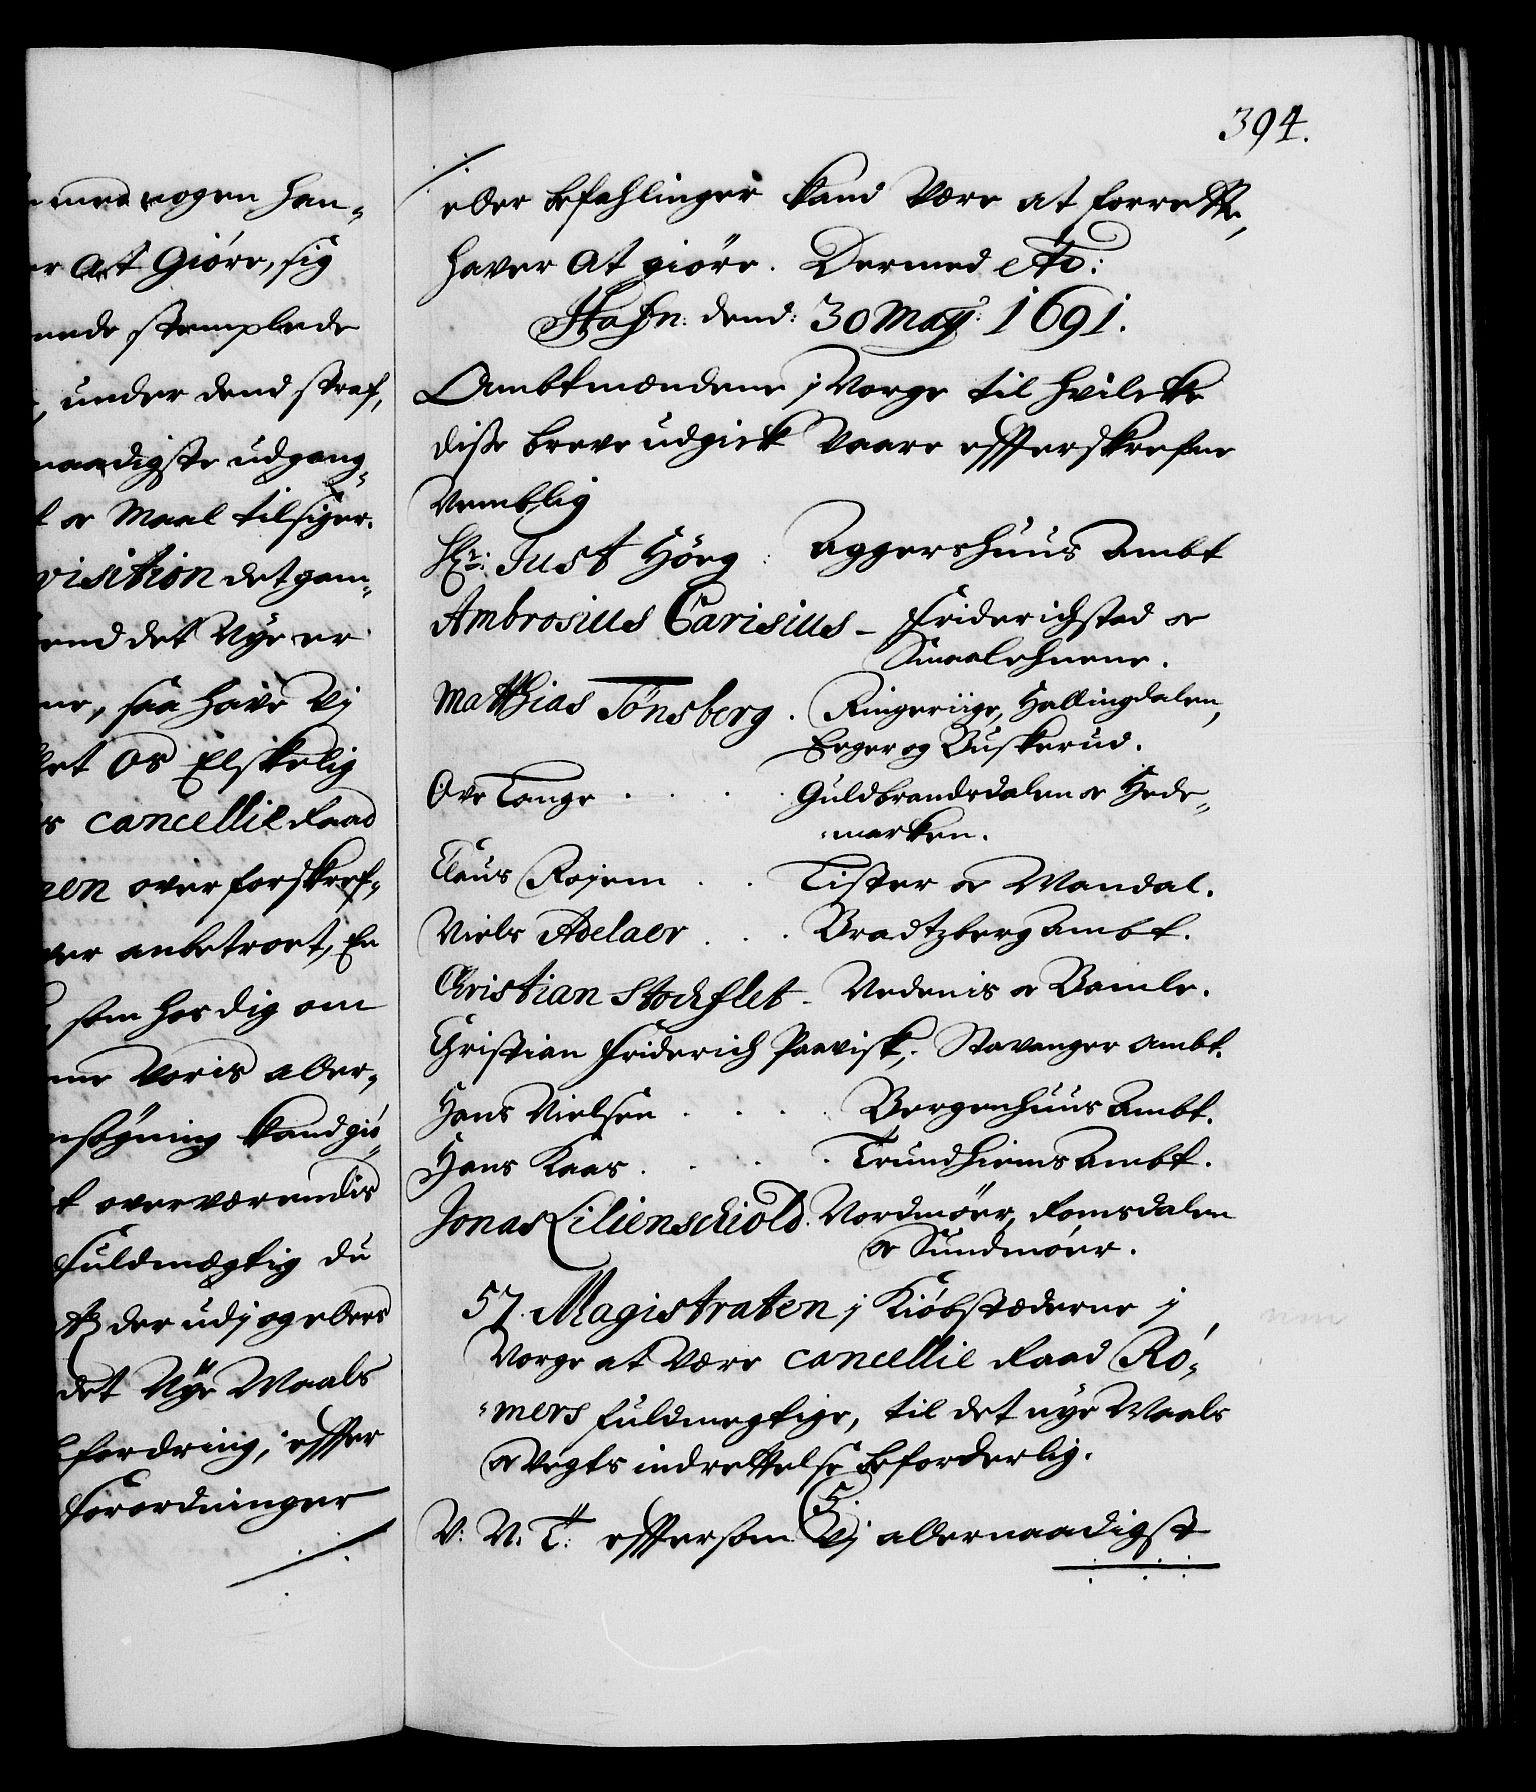 med nogen han-
er at Giöre, sig
nede stemplede
under dend straf,
naadigste udgang-
t oc Maal tilsiger.
visition det gam-
end det Nÿe er
ne, saa have Vj
let Os Elskelig
s Cancellie Raad
nen over forskref-
ver anbetroet, En
som hos dig om
ne Voris aller-
nsögning kand giö-
t overværendis
fuldmægtig du
der udj og ellers
det Nÿe Maals
fordring, effter
forordninger
394.
eller befahlinger kand være at forrette,
haver at giöre. Dermed etc:
Hafn: dend: 30 Maÿ: 1691.
Ambtmændene j Norge til hvilcke
disse breve udgick vaare effterskrefne
Nemblig
Hr: Just Höeg : Aggershuus Ambt
Ambrosius Carisius - Friderichstad oc
Smaalehnene.
Matthias Tönsberg . Ringeriige, Hallingdalen,
Eeger og Buskerud.
Ove Lange . . . . Guldbrandsdalen oc Hede-
marken.
Claus Röyem . . Lister oc Mandal.
Niels Adelaer . . . Bradtzberg Ambt.
Christian Stochflet - Nedenis oc Bamle.
Christian Friderich Paavisk, - Stavanger Ambt.
Hans Nielsen . . . . Bergenhuus Ambt.
Hans Kaas . . . . . Trundhiems Ambt.
Jonas Lilienschiold. Nordmöer, Romsdalen
oc Sundmöer.
57. Magistraten j Kiöbstæderne j
Norge at være Cancellie Raad Rö-
mers fuldmegtige, til det nye Maals
oc Vegts indrettelse beforderlig.
C. 5.
V. N. T: effersom Vj allernaadigst